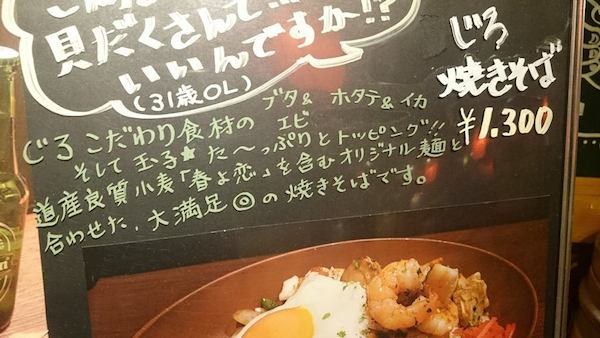 貝だくさんで…
いいんですか!?
(31歳OL)
じろ
焼きそば
¥1.300
じろこだわり食材の ブタ& ホタテ&イカ
エビ
そして玉子★た〜っぷりとトッピング!!
道産良質小麦「春よ恋」を含むオリジナル麺と
合わせた、大満足◎の焼きそばです。